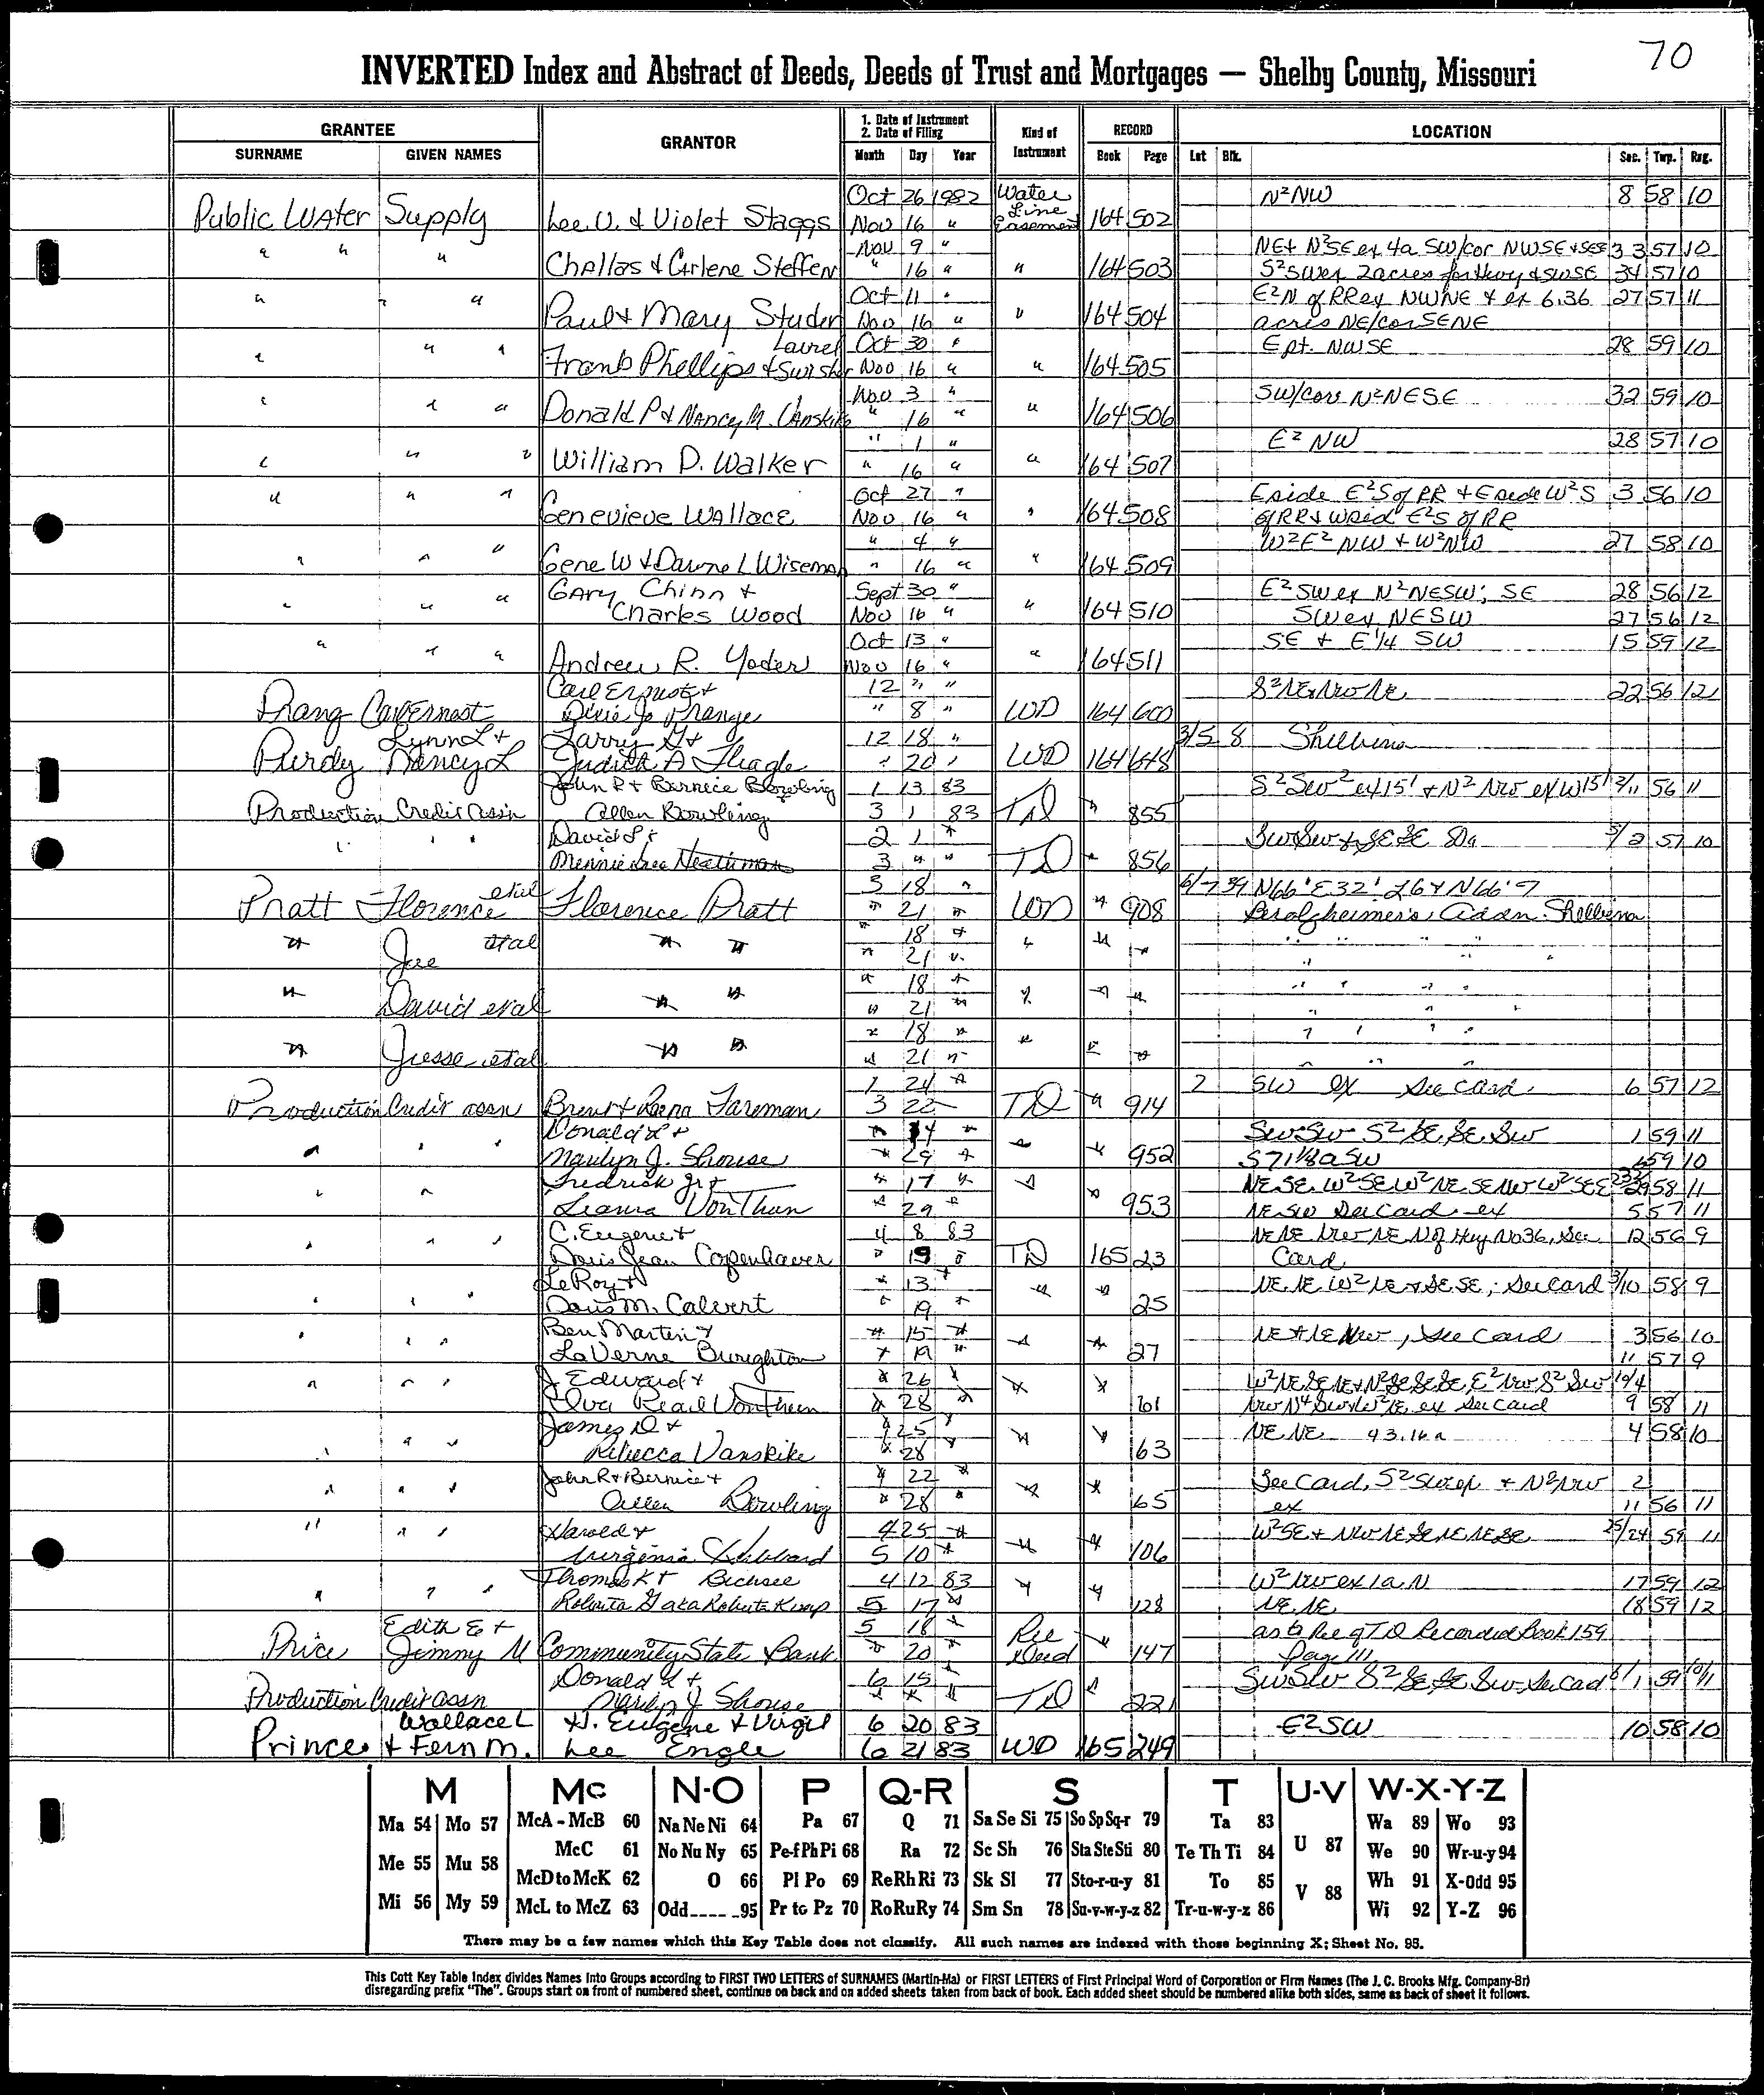 70
INVERTED Index and Abstract of Deeds, Deeds of Trust and Mortgages — Shelby County, Missouri
GRANTEE GRANTOR 1. Date of Instrument 2. Date of Filing Kind of Instrument RECORD LOCATION
SURNAME GIVEN NAMES Month Day Year Book Page Lot Blk. Sec. Twp. Rng.
Oct 26 1982 Water N²NW 8 58 10
Public Water Supply Lee U. & Violet Staggs Nov 16 " Line Easement 164 502
Nov 9 " NE& N²SE ex 4a SW/cor NWSE & SESE 33 57 10
" " " Challas & Carlene Steffen " 16 " " 164 503 S²SW ex 2 acres for Hwy & SWSE 34 57 10
Oct 11 " E²N of RR ex NWNE & ex 6.36 27 57 11
" " " Paul & Mary Studer Nov 16 " " 164 504 acres NE/cor SENE
Laurel Oct 30 " E pt. NWSE 28 59 10
" " " Frank Phillips & Swisher Nov 16 " " 164 505
Nov 3 " SW/cor N²NESE 32 59 10
" " " Donald P & Nancy M. Vanskike " 16 " " 164 506
" 1 " E² NW 28 57 10
" " " William D. Walker " 16 " " 164 507
Oct 27 " E side E²S of RR & E side W²S 3 56 10
" " " Genevieve Wallace Nov 16 " " 164 508 of RR & W side E²S of RR
" 4 " W²E² NW & W²NW 27 58 10
" " " Gene W & Dawne L Wiseman " 16 " " 164 509
Gary Chinn & Sept 30 " E²SW ex N²NESW; SE 28 56 12
" " " Charles Wood Nov 16 " " 164 510 SW ex NESW 27 56 12
Oct 13 " SE & E¼ SW 15 59 12
" " " Andrew R. Yoder Nov 16 " " 164 511
Carl Ernest & 12 " " S²NE & NWNE 22 56 12
Prang Carl Ernest Dixie Jo Prange " 8 " WD 164 600
Lynn L & Larry G & 12 18 " 3/5 8 Shelbina
Purdy Nancy L Judith A Fleagle " 20 " WD 164 648
John R & Bernice Bowling 1 13 83 S²SW² ex 15' & N² NW ex W15' 2/11 56 11
Production Credit Assn Allen Bowling 3 1 83 TD " 855
David L & 2 1 " SWSW & SESE 3/2 57 10
" " " 3 " " TD " 856
et al 3 18 " 6/7 39 N66' E32' L6 & N66' 7
Pratt Florence Florence Pratt " 21 " WD " 908 Bergheimer's Addn. Shelbina
" et al " " " 18 " " " " " " " "
Joe " 21 " " "
" David et al " " " 18 " " " " " " " "
" 21 " " " "
" Jesse et al " " " 18 " " " " " " " "
" 21 " " " "
1 24 " 2 SW ex See Card 6 57 12
Production Credit assn Brent & Foreman 3 22 TD " 914
Donald L & " 14 " SWSW S² SE, SE SW 1 59 11
" " " Marilyn J. Shouse " 29 " " " 952 S 71⅛a SW 6 59 10
Fredrick Jr & " 17 " NESE W²SE W²NE SENW W²
" " Leanna VonThun " 29 " " " 953 NESW See Card ex 5 57 11
C. Eugene & 4 8 83 NENE NWNE N of Hwy No 36, See 12 56 9
" " " Doris Jean Copenhaver " 19 " TD 165 23 Card
LeRoy & " 13 " NENE W²NE & SESE; See Card 3/10 58 9
" " " Doris M. Calvert " 19 " " " 25
Ben Martin & " 15 " NE & NENW, See Card 3 56 10
" " " LaVerne Burighton " 19 " " " 27 11 57 9
J. Edward & " 26 " W²NE SENE & N²SESESE, E²NW S² SW 10/4
" " " Elva Pearl VonThun " 28 " " " 61 ex See Card 9 58 11
James D & " 25 " NENE 43.16a 4 58 10
" " " Rebecca Vanskike " 28 " " " 63
John R & Bernice & " 22 " See Card, S²SW ex & N²NW 2
" " " Allen Bowling " 28 " " " 65 ex 11 56 11
Harold & 4 25 " W²SE & NWNESE NENESE 25/24 59 11
" " " Virginia Hibbard 5 10 " " " 106
Thomas K & Bichsel 4 12 83 W²NW ex 1a N 17 59 12
" " " Roberta G aka Roberta Kemp 5 17 " " " 128 NENE 18 59 12
Edith E & 5 18 " as to Rel of TD Recorded Book 159
Price Jimmy M Community State Bank " 20 " Rel Deed " 147 Page 111
Donald L & 6 15 " SWSW S² SE, SE SW, See Card 6/1 59 10/11
Production Credit assn Marilyn J Shouse " " " TD " 221
Wallace L H. Eugene & Virgil 6 20 83 E²SW 10 58 10
Prince & Fern M. Lee Engle 6 21 83 WD 165 249
M Mc N-O P Q-R S T U-V W-X-Y-Z
Ma 54 Mo 57 McA - McB 60 Na Ne Ni 64 Pa 67 Q 71 Sa Se Si 75 So Sp Sq-r 79 Ta 83 Wa 89 Wo 93
McC 61 No Nu Ny 65 Pe-f Ph Pi 68 Ra 72 Sc Sh 76 Sta Ste Sti 80 Te Th Ti 84 U 87 We 90 Wr-u-y 94
Me 55 Mu 58 McD to McK 62 O 66 Pl Po 69 Re Rh Ri 73 Sk Sl 77 Sto-r-u-y 81 To 85 Wh 91 X-Odd 95
Mi 56 My 59 McL to McZ 63 Odd____ 95 Pr to Pz 70 Ro Ru Ry 74 Sm Sn 78 Su-v-w-y-z 82 Tr-u-w-y-z 86 V 88 Wi 92 Y-Z 96
There may be a few names which this Key Table does not classify. All such names are indexed with those beginning X; Sheet No. 95.
This Cott Key Table Index divides Names into Groups according to FIRST TWO LETTERS of SURNAMES (Martin-Ma) or FIRST LETTERS of First Principal Word of Corporation or Firm Names (The J. C. Brooks Mfg. Company-Br)
disregarding prefix "The". Groups start on front of numbered sheet, continue on back and on added sheets taken from back of book. Each added sheet should be numbered alike both sides, same as back of sheet it follows.